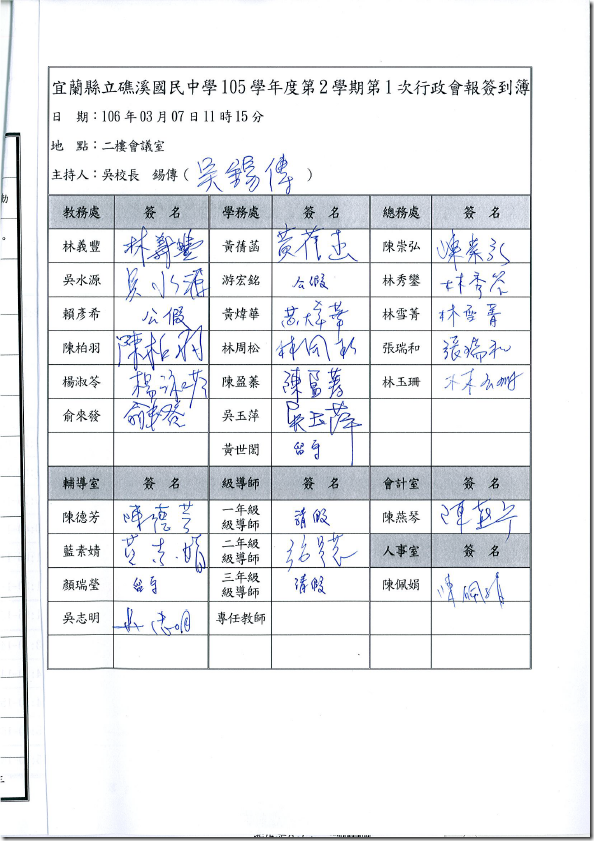 宜蘭縣立礁溪國民中學105學年度第2學期第1次行政會報簽到簿
日 期:106年03月07日11時15分
地 點:二樓會議室
主持人:吳校長 錫傳( 吳錫傳 )
教務處 簽 名 學務處 簽 名 總務處 簽 名
林義豐 林義豐 黃蒨菡 陳崇弘 陳崇弘
吳水源 吳水源 游宏銘 公假 林秀鑾
賴彥希 公假 黃煒華 黃煒華 林雪菁 林雪菁
陳柏羽 陳柏羽 林周松 張瑞和 張瑞和
楊淑苓 陳盈蓁 陳盈蓁 林玉珊
俞來發 吳玉萍 吳玉萍
黃世閎 留守
輔導室 簽 名 級導師 簽 名 會計室 簽 名
陳德芳 陳德芳 一年級級導師 請假 陳燕琴
藍素婧 二年級級導師 人事室 簽 名
顏瑞瑩 留守 三年級級導師 請假 陳佩娟 陳佩娟
吳志明 吳志明 專任教師